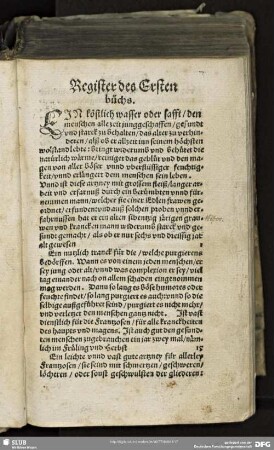 Register des Ersten
büchs.
EIN köstlich wasser oder safft / den
menschen alle zeit jung geschaffen / gesundt
vnd starck zu behalten / das alter zu verhin-
deren / als ob er allzeit inn seinem höchsten
wolstand lebte: bringt widerumb vnd behütet die
natürlich wärme / reiniget das geblüt vnd den ma-
gen von aller böser vnd überflüssiger feuchtig-
keit / vnnd erlängert dem menschen sein leben.
Vnnd ist diese artzney mit grossem fleiß / langer ar-
beit vnd erfarnuß durch ein berümbten vnnd für-
nemen mann / welcher sie einer Edlen frawen geo-
rdnet / erfunden vnd auß solchen proben vnnd er-
farnussen hat er ein alten sibentzig järigen
wen vnd krancken mann widerumb starck vnd ge-
sund gemacht / als ob er nur sechs vnd dreissig jar
alt gewesen
Ein nützlich tranck für die / welche purgierens
bedörffen. Wann es von einem jeden menschen / er
sey jung oder alt / vnnd was complexion er sey / vil
tag einander nach on allem schaden eingenommen
mag werden. Dann so lang es böse humores oder
feuchte findet / so lang purgiert es auch: vnnd so die
selbige außgeführt seind / purgiert es nicht mehr /
vnd verletzet den menschen gantz nicht. Ist vast
dienstlich für die Frantzosen / für alle kranckheiten
des haupts vnd magens. Ist auch gut den gesun-
ten menschen zugebrauchen ein jar zwey mal / näm-
lich im Früling vnd Herbst
Ein leichte vnnd vast gute artzney für allerley
Frantzosen / sie seind mit schmertzen / geschweren /
löcheren / oder sonst geschwulsten der gliederen:
SLUB